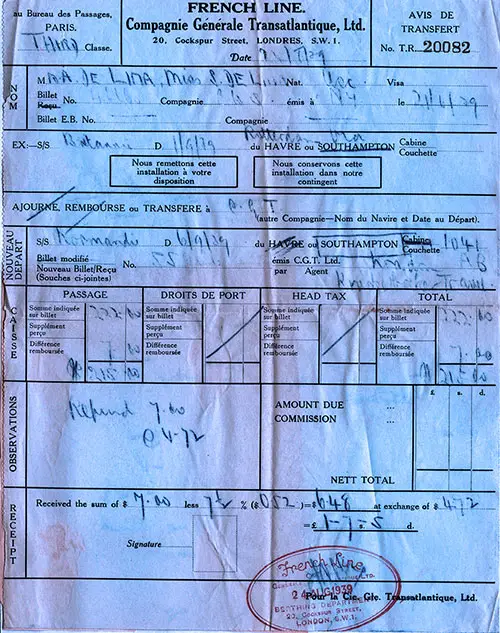 au Bureau des Passages,
PARIS.
THIRD Classe.
FRENCH LINE.
Compagnie Générale Transatlantique, Ltd.
20, Cockspur Street, LONDRES, S.W.1.
Date
AVIS DE
TRANSFERT
No. T.R. 20082
NOM
M DE LIMA, Miss S. DE Nat. Visa
Billet
Reçu No. Compagnie émis à le 21/4/39
Billet E.B. No. Compagnie
EX:—S/S D 1/9/39 du HAVRE ou SOUTHAMPTON Cabine
Couchette
Nous remettons cette
installation à votre
disposition
Nous conservons cette
installation dans notre
contingent
AJOURNE, REMBOURSE ou TRANSFERE à C.G.T.
(autre Compagnie—Nom du Navire et Date au Départ).
NOUVEAU DEPART
S/S Normandie D 6/9/39 du HAVRE ou SOUTHAMPTON Cabine
Couchette 1041 B
Billet modifié No.
Nouveau Billet/Reçu
(Souches ci-jointes)
émis C.G.T. Ltd.
par Agent
CAISSE
PASSAGE DROITS DE PORT HEAD TAX TOTAL
Somme indiquée sur billet 222.00 Somme indiquée sur billet Somme indiquée sur billet Somme indiquée sur billet 222.00
Supplément perçu Supplément perçu Supplément perçu Supplément perçu
Différence remboursée 7.00 Différence remboursée Différence remboursée Différence remboursée 7.00
215.00 215.00
OBSERVATIONS
Refund 7.00
@ 4.72
£ s. d.
AMOUNT DUE ...
COMMISSION ...
NETT TOTAL
RECEIPT
Received the sum of $ 7.00 less 7½ % ($ 0.52) = $ 6.48 at exchange of $ 4.72
= £ 1-7-5 d.
Signature
French Line
24 AUG 1939
BERTHING DEPARTMENT
20, COCKSPUR STREET,
LONDON, S.W.1.
Pour la Cie. Gle. Transatlantique, Ltd.